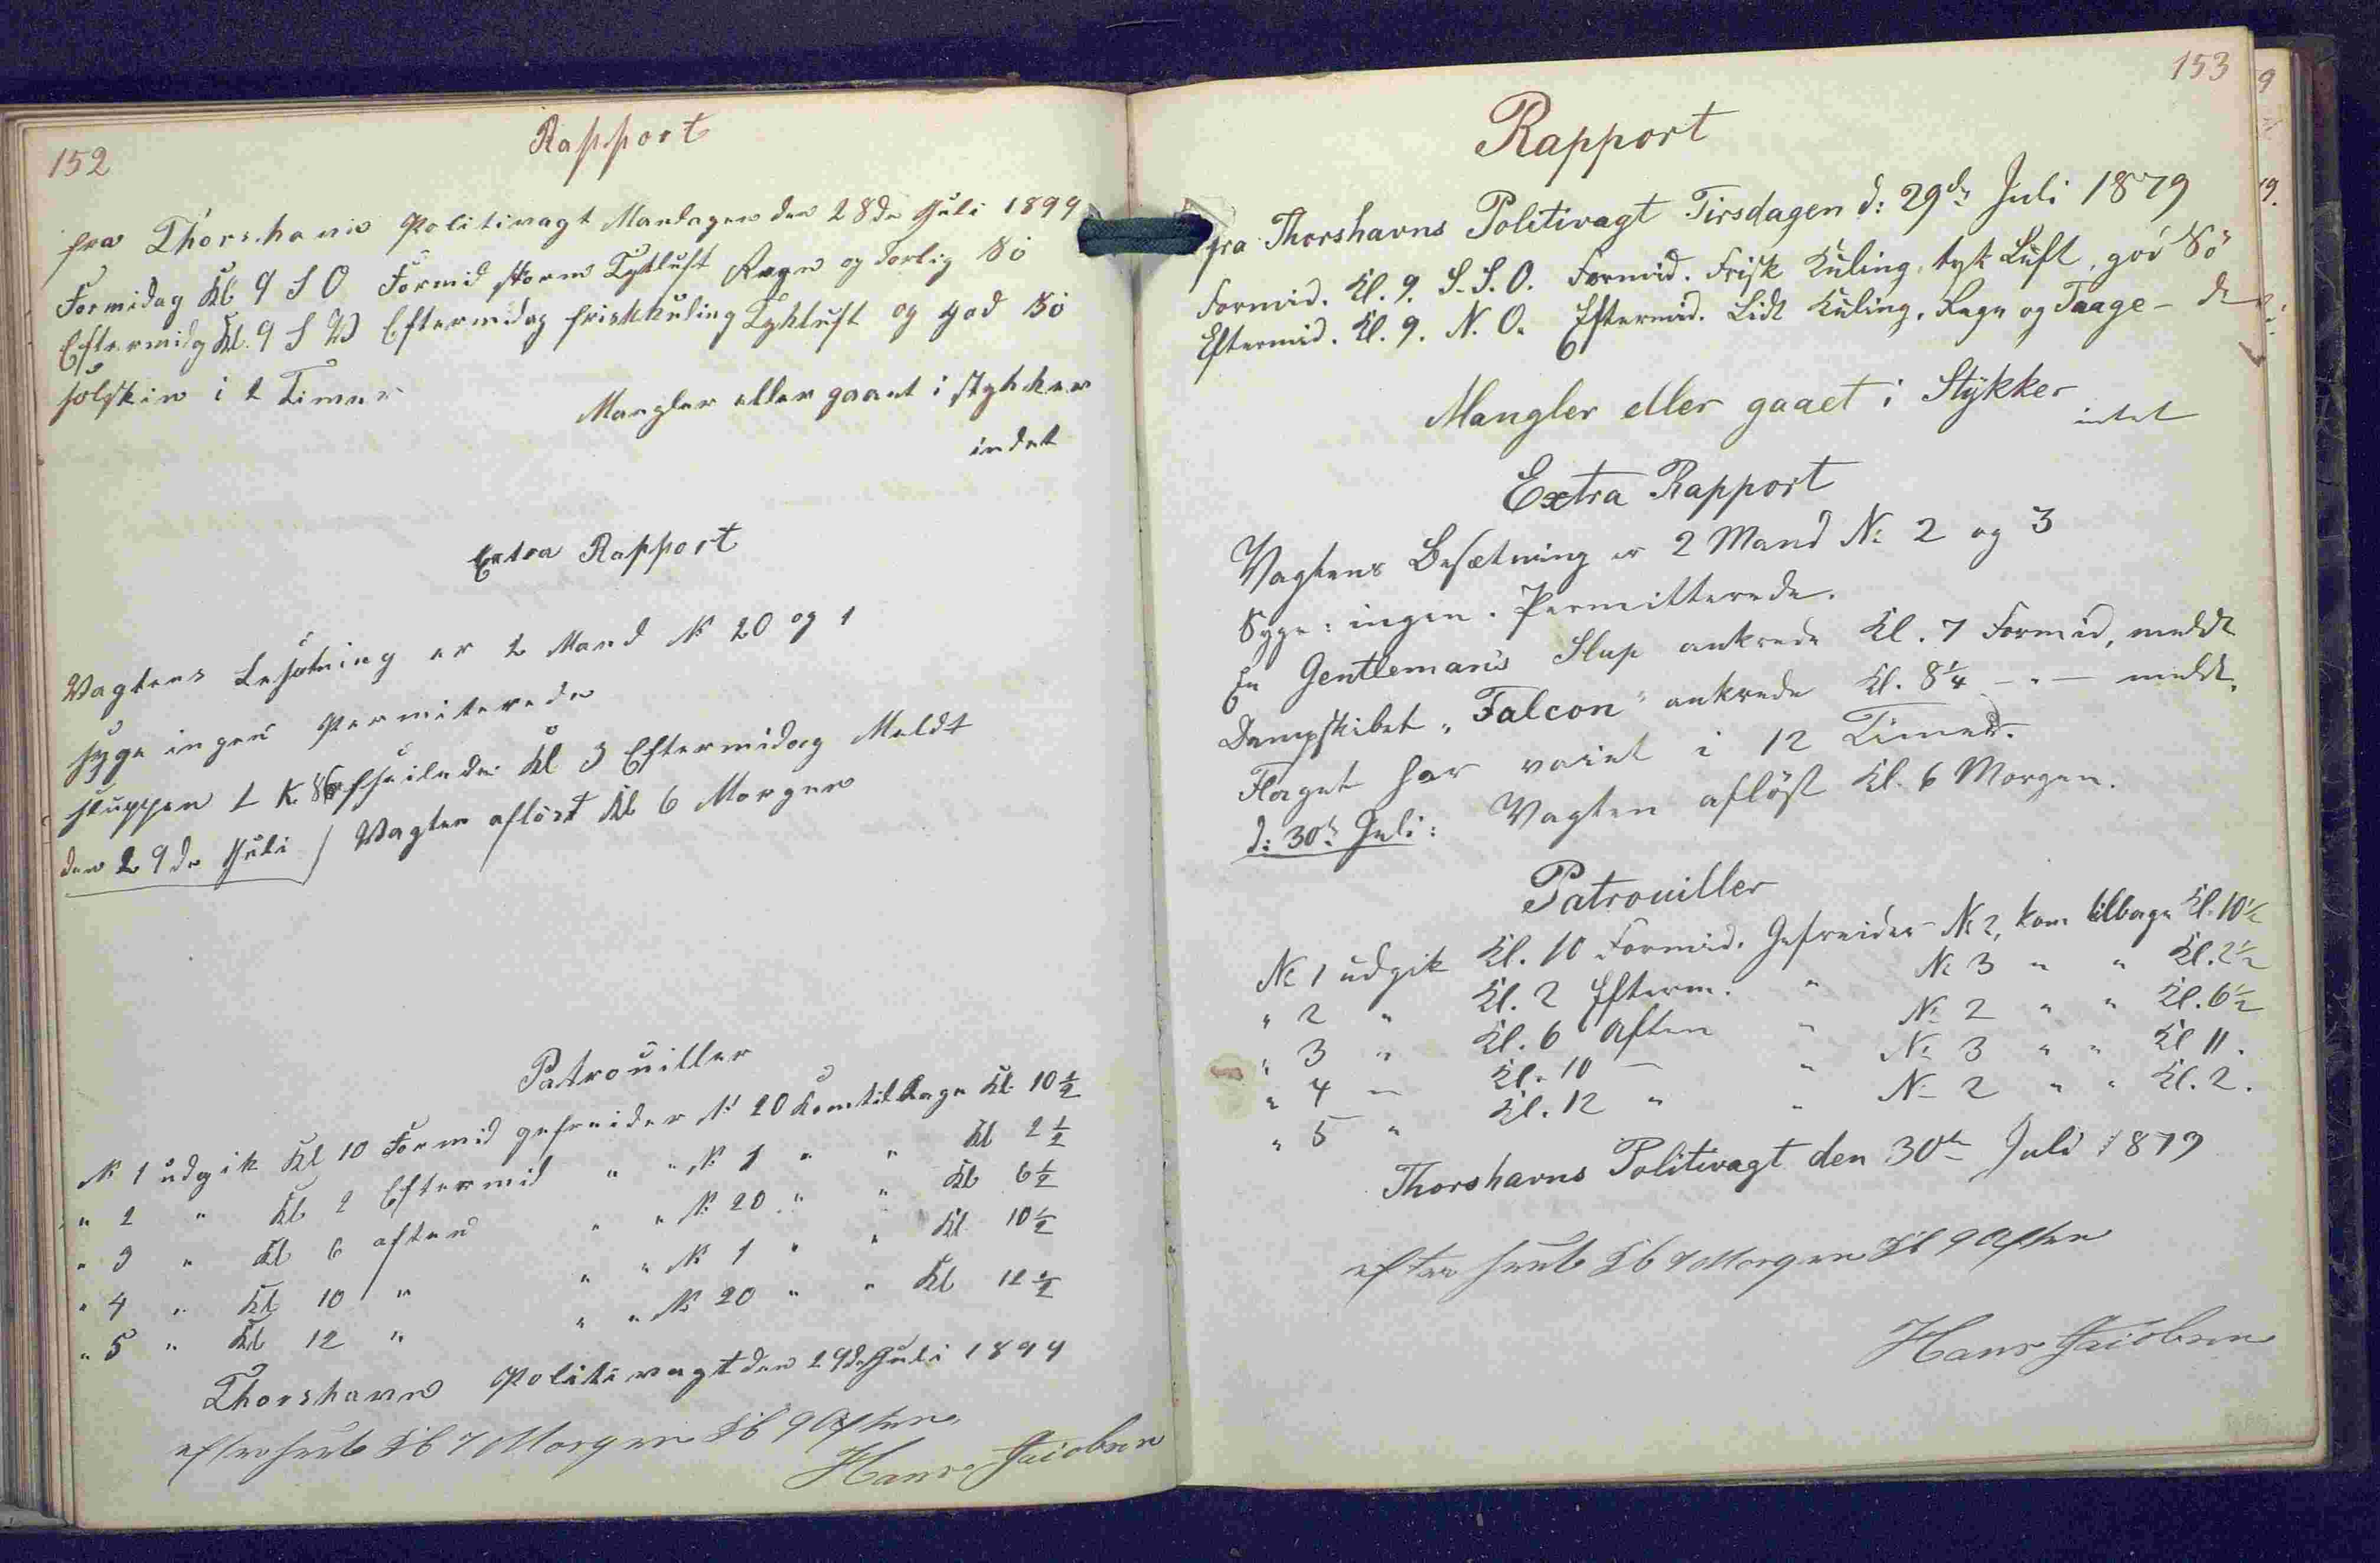 152
Rapport
fra Thorshavns Politivagt Mandagen den 28de Juli 1879
Formidag Kl 9 S O Formid storm Tykluft Regn og Dorlig Sö
Eftermidg Kl. 9 S V Eftermidag friskkuling Tykluft og god Sö
solskin i 2 Timer
Mangler eller gaaet i stykker
indet
Extra Rapport
Vagtens Besøtning er 2 Mand No 20 og 1
syge ingen Permiterede
sluppen L K 86 afseilede Kl 3 Eftermidag Meldt
den 29de Juli / Vagten aflöst Kl 6 Morgen
Patrouiller
No 1 udgik Kl 10 Formid gefreider No 20 kom tilbage Kl 10 1/2
" 2 " Kl 2 Eftermid " " No 1 " " Kl 2 1/2
" 3 " Kl 6 aften " " No 20 " " Kl 6 1/2
" 4 " Kl 10 " " " No 1 " " Kl 10 1/2
" 5 " Kl 12 " " " No 20 " " Kl 12 1/2
Thorshavns Politivagt den 29de Juli 1879
efterseet Kl 7 Morgen Kl 9 Aften
Hans Jacobsen
153
Rapport
fra Thorshavns Politivagt Tirsdagen d: 29de Juli 1879
Formid. Kl. 9. S.S.O. Formid. Frisk Kuling, tyk Luft, god Sö
Eftermid. Kl. 9. N.O. Eftermid. Lidt Kuling, Regn og Taage –
Mangler eller gaaet i Stykker
intet
Extra Rapport
Vagtens Besætning er 2 Mand No 2 og 3
Syge: ingen. Permitterede.
En Gentleman's Slup ankrede Kl. 7 Formid, meldt
Dampskibet "Falcon" ankrede Kl. 8 1/4 – " – meldt.
Flaget har vaiet i 12 Timer.
d: 30te Juli: Vagten aflöst Kl. 6 Morgen.
Patrouiller
No 1 udgik Kl. 10 Formid. Gefreider No 2, kom tilbage Kl. 10 1/2
" 2 " Kl. 2 Efterm. " No 3 " " Kl. 2 1/2
" 3 " Kl. 6 Aften " No 2 " " Kl. 6 1/2
" 4 – Kl. 10 – " No 3 " " Kl 11.
" 5 " Kl. 12 " " No 2 " " Kl. 2.
Thorshavns Politivagt den 30te Juli 1879
efterseet Kl 7 Morgen Kl 9 Aften
Hans Jacobsen